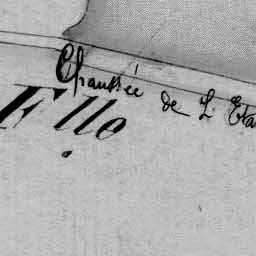 Chaussée de L'Eta
Elle